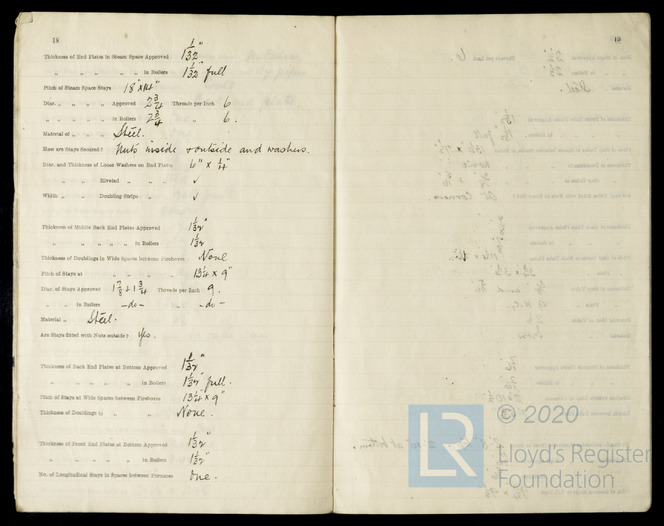 18
Thickness of End Plates in Steam Space Approved 1 1/32"
" " " " " in Boilers 1 1/32" full
Pitch of Steam Space Stays 18" x
Diar. " " " " Approved 2 3/4 Threads per Inch 6
" " " " in Boilers 2 3/4 " " 6.
Material of " " Steel.
How are Stays Secured? Nuts inside & outside and washers.
Diar. and Thickness of Loose Washers on End Plates 6" x 1/4"
" " Riveted " " " ✓
Width " " Doubling Strips " " ✓
Thickness of Middle Back End Plates Approved 1 1/32"
" " " " " in Boilers 1 1/32
Thickness of Doublings in Wide Spaces between Fireboxes None
Pitch of Stays at " " " x 9"
Diar. of Stays Approved 1 7/8 + 1 3/4 Threads per Inch 9.
" " in Boilers -do- " -do-
Material " Steel.
Are Stays fitted with Nuts outside? Yes.
Thickness of Back End Plates at Bottom Approved 1 1/32"
" " " " " in Boilers 1 1/32" full.
Pitch of Stays at Wide Spaces between Fireboxes x 9"
Thickness of Doublings in " " None.
Thickness of Front End Plates at Bottom Approved 1 1/32"
" " " " " in Boilers 1 1/32"
No. of Longitudinal Stays in Spaces between Furnaces One.
19
© 2020
LR
Lloyd's Register
Foundation